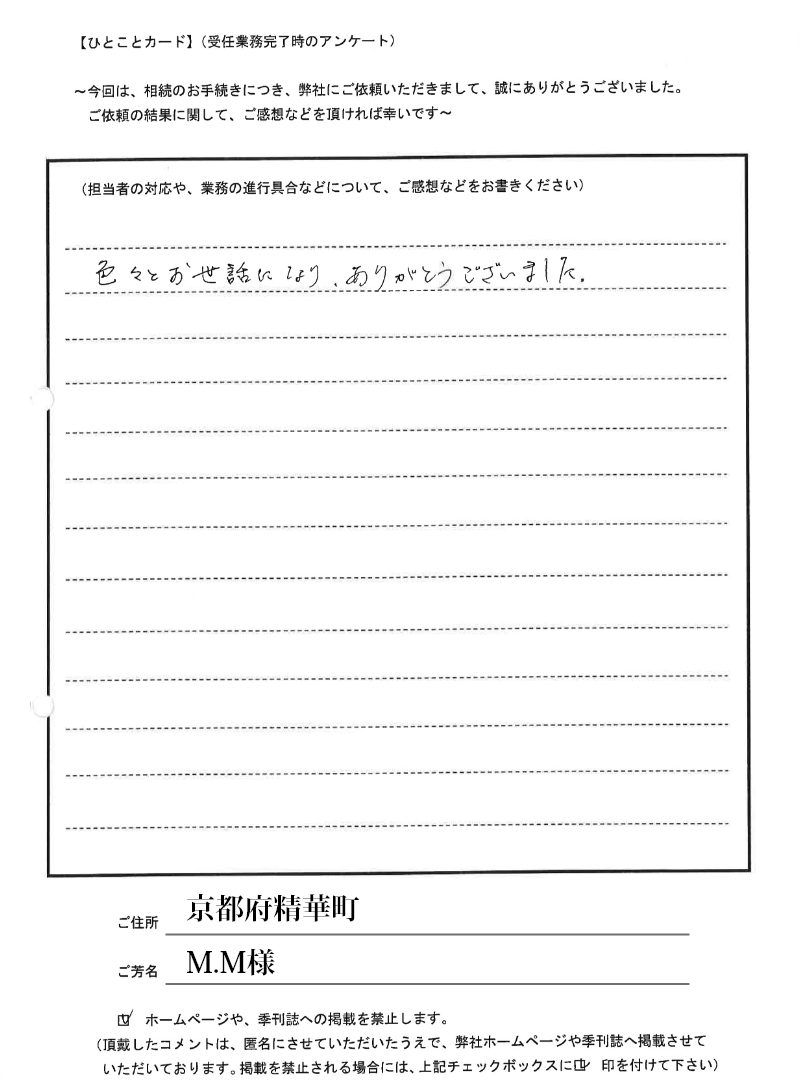 【ひとことカード】（受任業務完了時のアンケート）
～今回は、相続のお手続きにつき、弊社にご依頼いただきまして、誠にありがとうございました。
ご依頼の結果に関して、ご感想などを頂ければ幸いです～
（担当者の対応や、業務の進行具合などについて、ご感想などをお書きください）
色々とお世話になり、ありがとうございました。
ご住所 京都府精華町
ご芳名 M.M様
☑ ホームページや、季刊誌への掲載を禁止します。
（頂戴したコメントは、匿名にさせていただいたうえで、弊社ホームページや季刊誌へ掲載させて
いただいております。掲載を禁止される場合には、上記チェックボックスに☑ 印を付けて下さい）